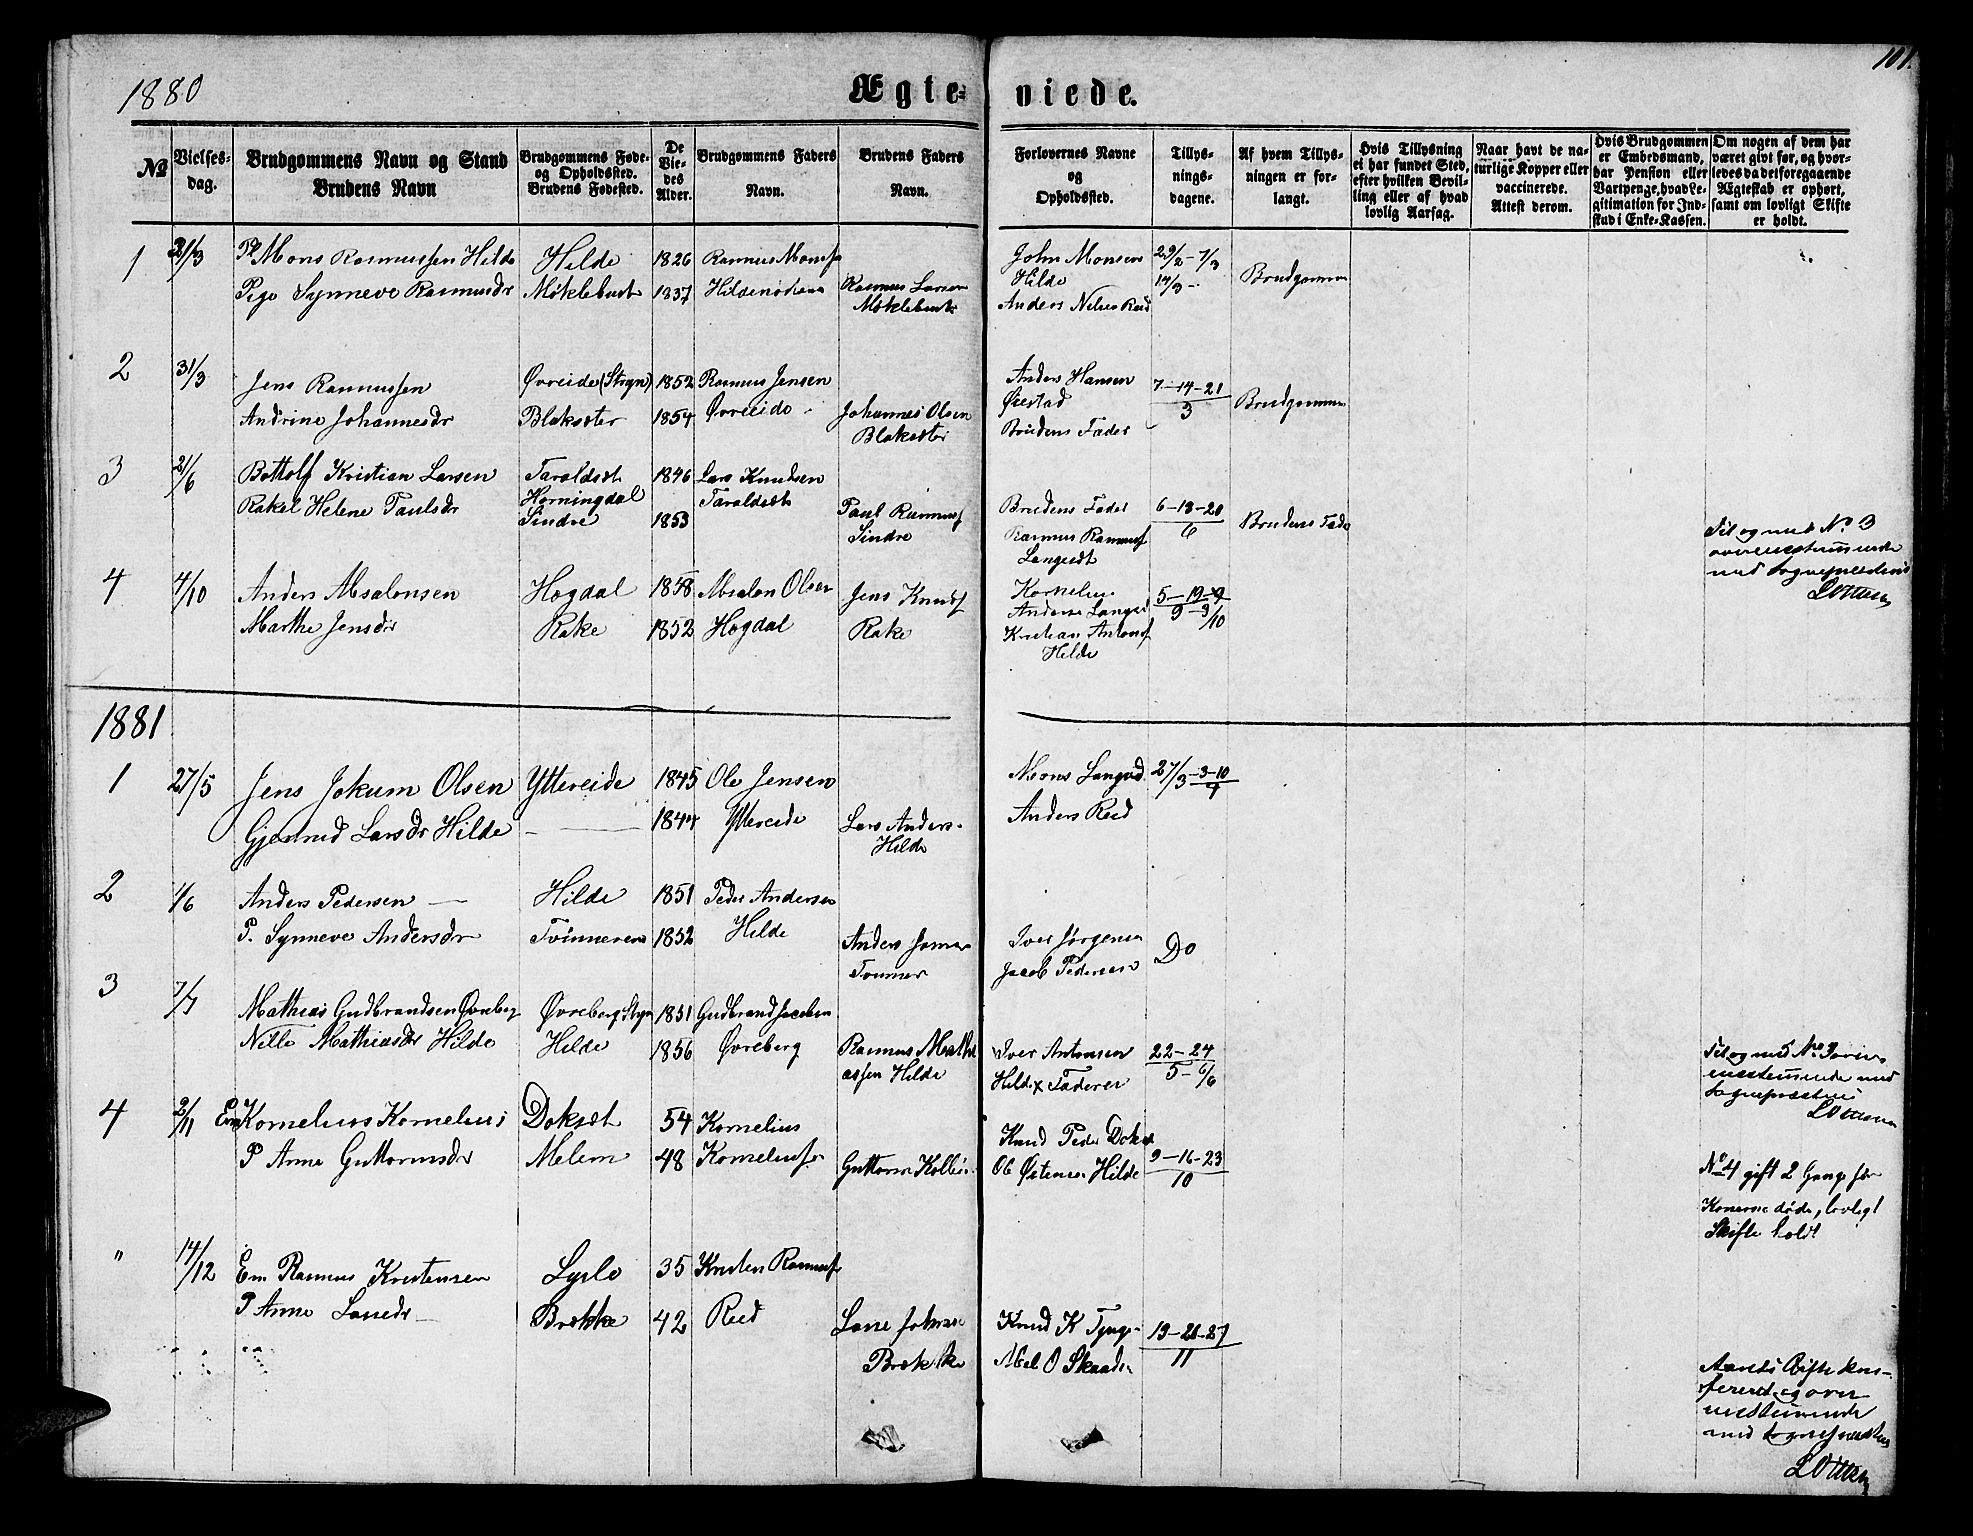 101.
1880
Ægte- viede.
No
Vielses-dag.
Brudgommens Navn og Stand
Brudens Navn
Brudgommens Føde- og Opholdssted.
Brudens Fødested.
De Viedes Alder.
Brudgommens Faders Navn.
Brudens Faders Navn.
Forlovernes Navne og Opholdssted.
Tillysningsdagene.
Af hvem Tillysningen er forlangt.
Hvis Tillysning ei har fundet Sted, efter hvilken Bevilling eller af hvad lovlig Aarsag.
Naar havt de naturlige Kopper eller vaccinerede. Attest derom.
Hvis Brudgommen er Embedsmand, har Pension eller Vartpenge, hvad Legitimation for Indskud i Enke-Kassen.
Om nogen af dem har været givt før, og hvorledes da det foregaaende Ægteskab er ophørt, samt om lovligt Skifte er holdt.
1 21/3 Mons Rasmussen Hilde Hilde 1826 Rasmus Monss John Monsen 29/2 - 7/3
Pige Synneve Rasmusdr Møklebust 1837 Rasmus Larsen Hilde 14/3 - Brudgommen
Møklebust Anders Nilsen Reed
2 31/3 Jens Rasmussen Øvreeide (Stryn) 1852 Rasmus Jensen Anders Hansen 7-14-21
Andrine Johannesdr Blaksæter 1854 Øvreeide Johannes Olsen Øiestad 3 Brudgommen
Blaksæter Brudens Fader
3 21/6 Bottolf Kristian Larsen Taraldset 1846 Lars Knudsen
Rakel Helene Paulsdr Horningdal Taraldset Brudens Fader 6-13-20
Sindre 1853 Paul Rasmuss Rasmus Rasmuss 6 Brudens Fader
Sindre Langedt
Til og med No 3
overensstemmende
med Sognepræstens
4 4/10 Anders Absalonsen Hogdal 1848 Absalon Olsen Jens Knuds Kornelius 5-19-
Marthe Jensdr Rake 1852 Hogdal Rake Anderse Langed 9 - 3/10
Kristian Antons
Hilde
1881
1 27/5 Jens Jokum Olsen Yttereide 1845 Ole Jensen Mons Langed 27/3-3-10
Gjertrud Larsdr Hilde — 1844 Yttereide Lars Anders- Anders Reed 4
Hilde
2 1/6 Anders Pedersen — Hilde 1851 Peder Andersen
P. Synneve Andersdr 1852 Hilde Anders Iver Jørgensen Do
Jacob Pedersen
3 7/7 Mathias Gudbrandsen Øvreberg Øvreberg Stryn 1851 Gudbrand Jacobsen
Nille Mathiasdr Hilde Hilde 1856 Øvreberg Rasmus Mathi Iver Antonsen 22-24
assen Hilde Hilde x Faderen 5-6/6
Til og med No 3 overens
stemmende med
Sognepræstens
4 2/11 Em Kornelius Kornelius Dokset 54 Kornelius Knud Peder Dokset
P Anne Guttormsdr Melem 48 Korneliuss Guttorm Ole Østensen Hilde 9-16-23
10
No 4 gift 2 Gange før
Konerne døde, lovligt
Skifte holdt
" 14/12 Em Rasmus Kristensen Lyslo 35 Kristen Rasmuss
P Anne Lassedr — Brække 42 Reed Lasse Knud K Tjugs- 13-20-27
Brække Abel O Skaade 11
Aarets Gifte kon-
fereret og over
ensstemmende
med Sognepræstens